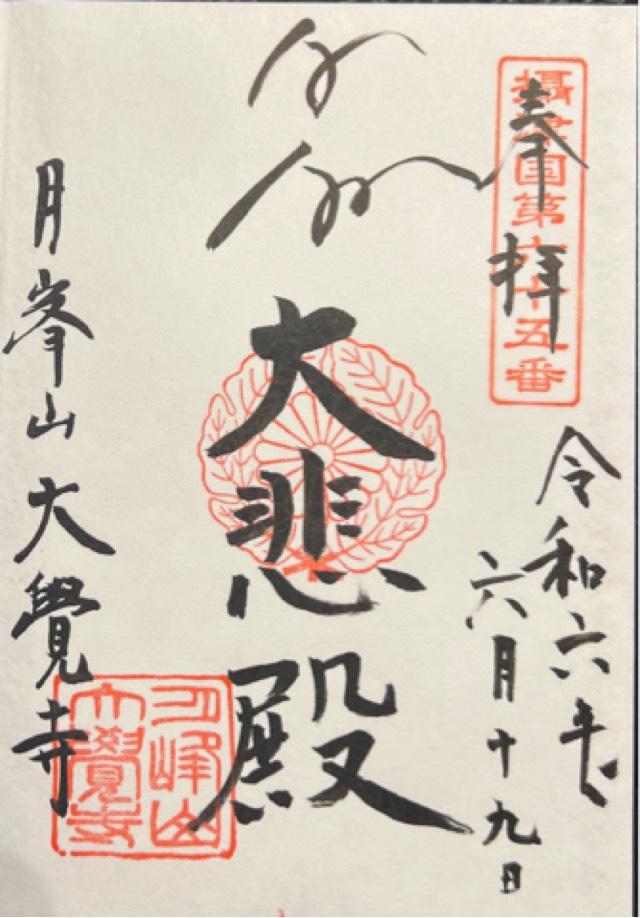 奉拝
攝津国第六十五番
令和六年
六月十九日
大悲殿
月峯山大覺寺
月峰山
大覺寺